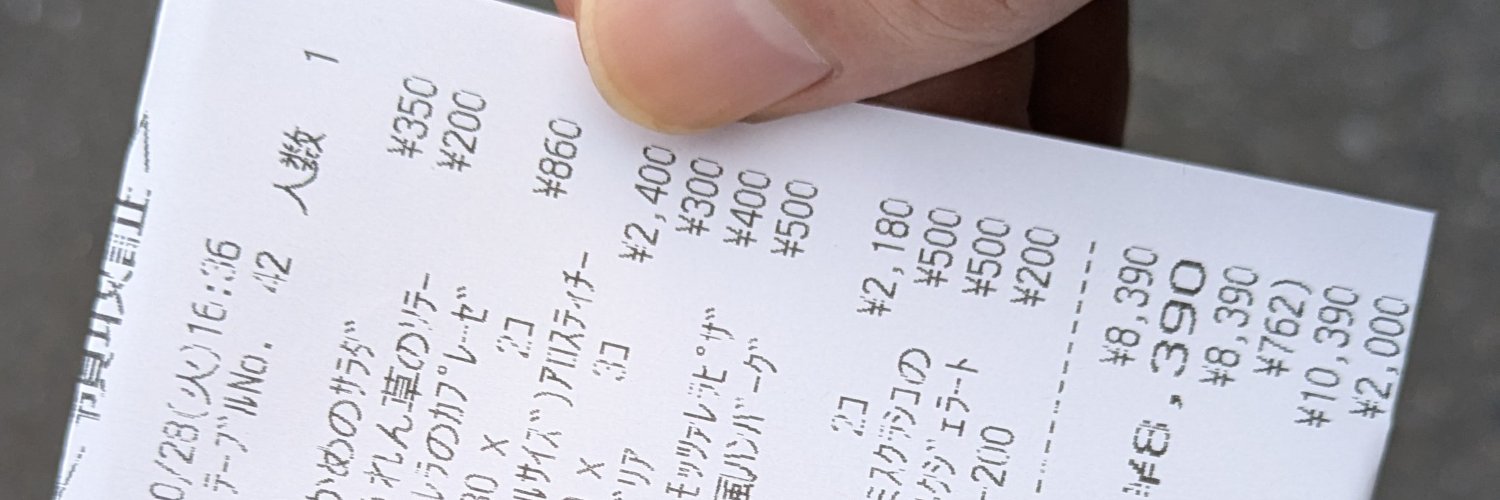 0/28(火)16:36
テーブルNo. 42 人数 1
かめのサラダ ¥350
れん草のソテー ¥200
レラのカプレーゼ
30 x 2コ ¥860
ルサイズ)アリスティチー
x 3コ ¥2,400
リア ¥300
モッツァレラピザ ¥400
風ハンバーグ ¥500
2コ ¥2,180
ミスクザッシコの ¥500
ジェラート ¥500
-200 ¥200
¥8,390
¥8,390
¥8,390
¥762)
¥10,390
¥2,000